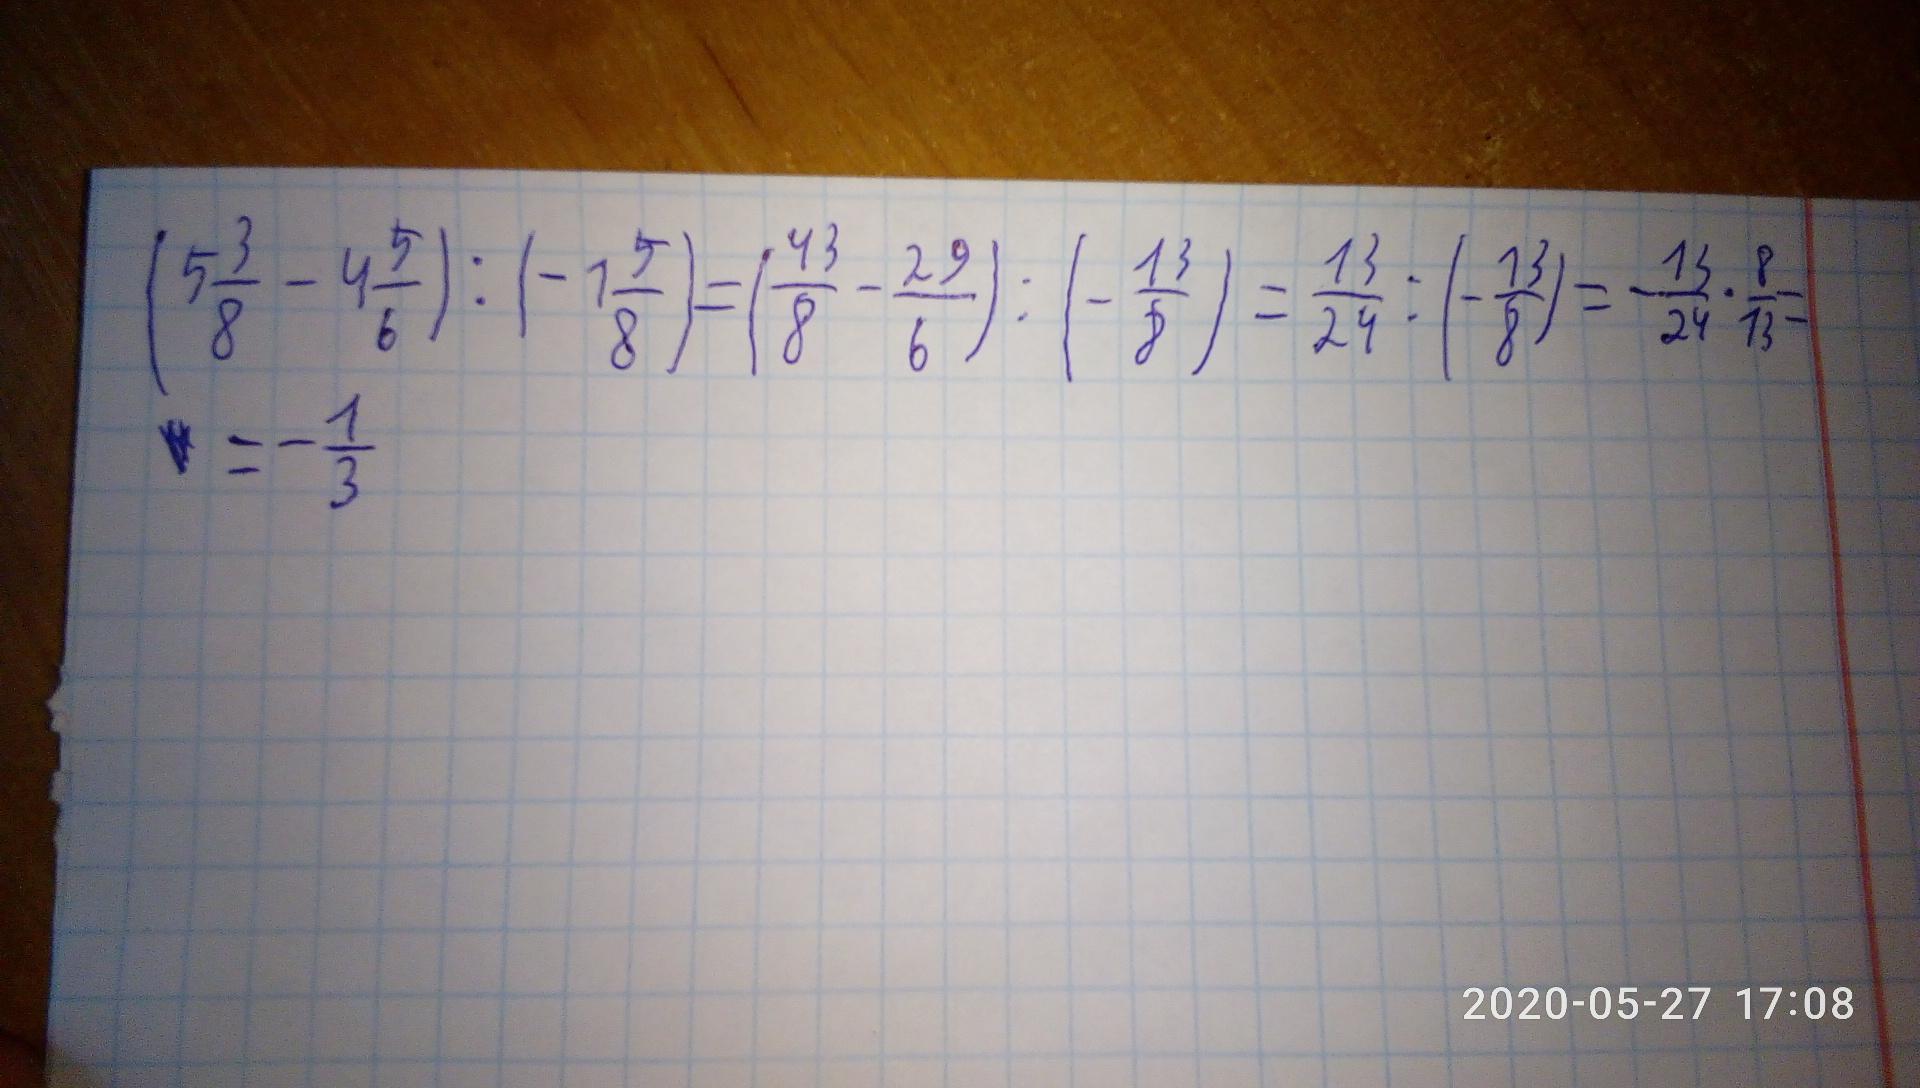 (5 3/8 - 4 5/6) : (-1 5/8) = (43/8 - 29/6) : (-13/8) = 13/24 : (-13/8) = -13/24 · 8/13 =
= -1/3
2020-05-27 17:08